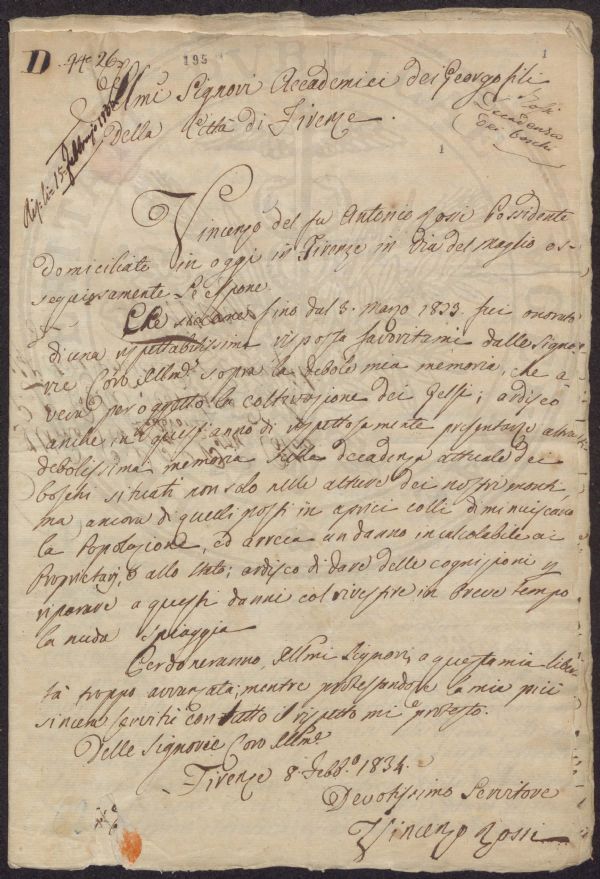 D. 94. 26
195
1
Illmi Signori Accademici dei Georgofili
della Città di Firenze.
Rosi
Decadenza
dei boschi
1
Risp. li 15 Febbrajo 1834
Vincenzo del fu Antonio Rosi Possidente
domiciliato in oggi in Firenze in Via del Maglio os-
sequiosamente Le espone
Che fino dal 3. Marzo 1833. fui onorato
di una rispettabilissima risposta favoritami dalle Signo-
rie Loro Illme. sopra la debole mia memoria, che a-
veva per oggetto la coltivazione dei Gelsi; ardisco
anche in quest'anno di rispettosamente presentarne altra
debolissima memoria sulla decadenza attuale dei
boschi situati non solo nelle alture dei nostri monti,
ma ancora di quelli posti in aprici colli diminuiscano
la Popolazione, ed arreca un danno incalcolabile ai
Proprietarj, e allo Stato; ardisco di dare delle cognizioni p
riparare a questi danni col rivestire in breve tempo
la nuda spiaggia
Perdoneranno, Illmi Signori, a questa mia liber-
tà troppo avanzata; mentre protestandole la mia più
sincera servitù con tutto il rispetto mi protesto.
Delle Signorie Loro Illme.
Firenze 8. Febbo. 1834.
Devotissimo Servitore
Vincenzo Rosi